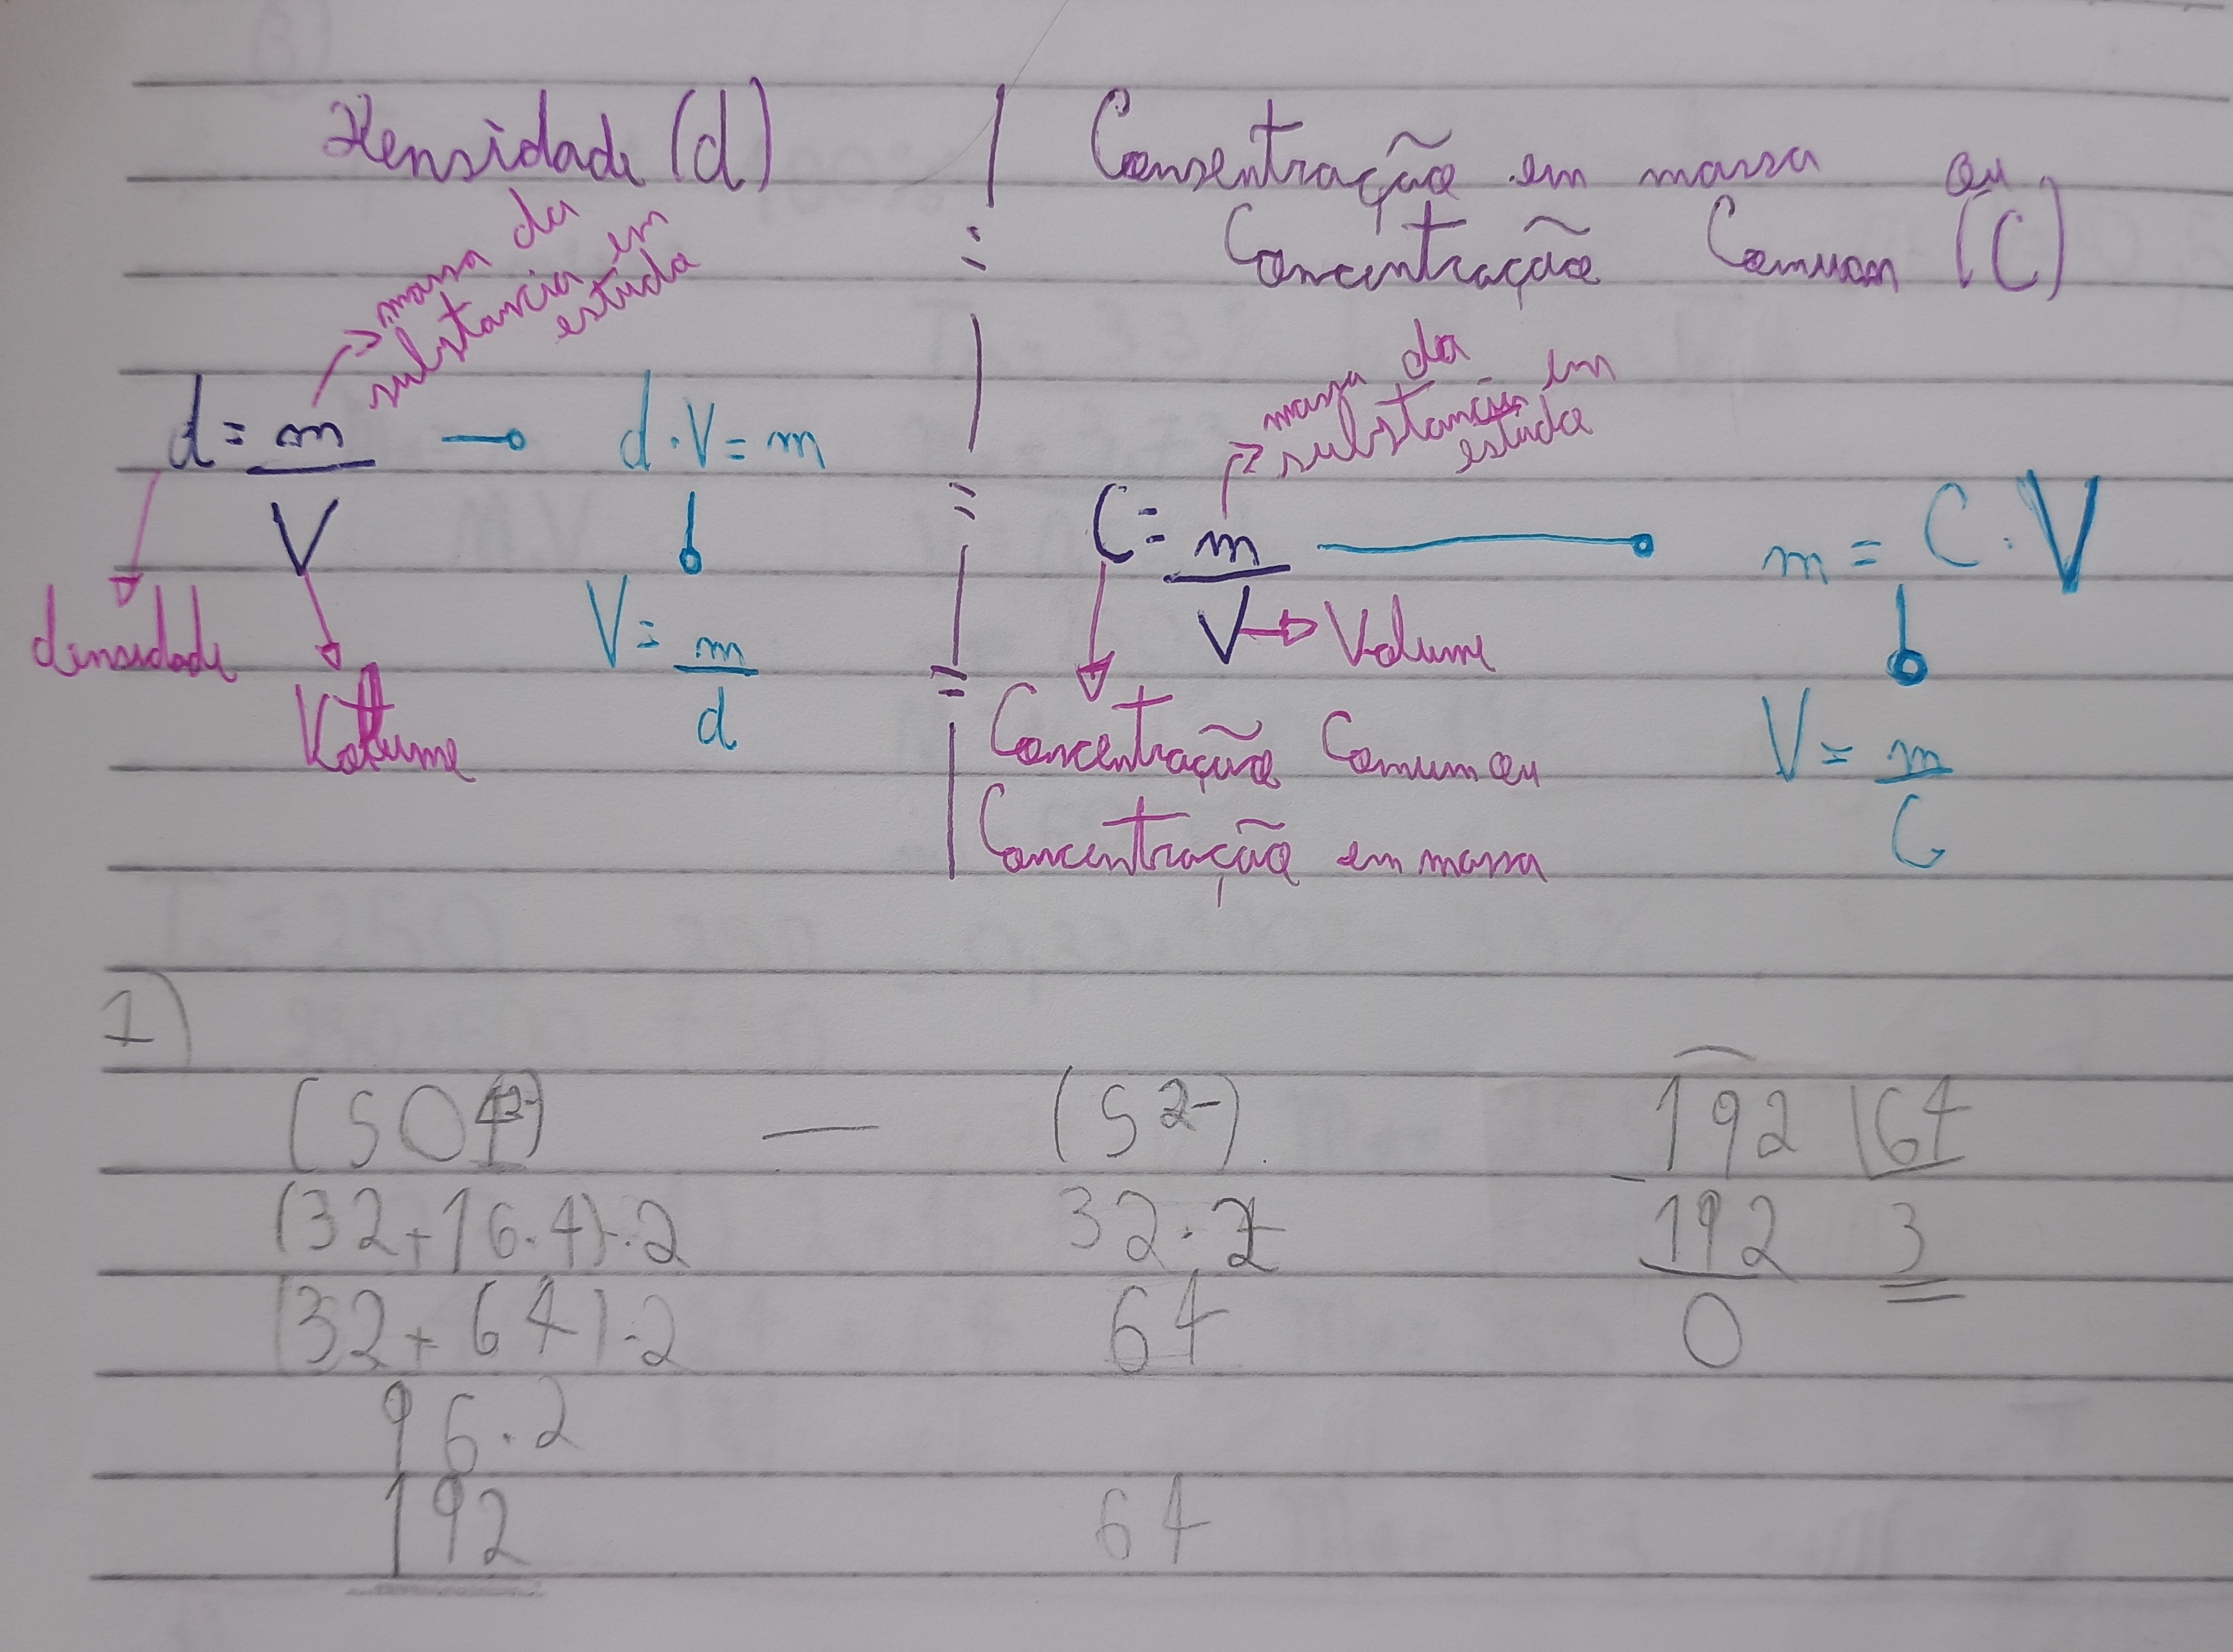 Densidade (d)
massa da
substancia em
estuda
d = m/V → d·V = m
densidade
Volume
V = m/d
Consentração em massa ou
Concentração Comum (C)
massa da
substancia em
estuda
C = m/V → m = C·V
Volume
Concentração Comum ou
Concentração em massa
V = m/C
1)
(SO4²⁻) — (S²⁻)
(32+16·4)·2
32·2
(32+64)·2
64
96·2
192
64
192 |64
-192 3
0